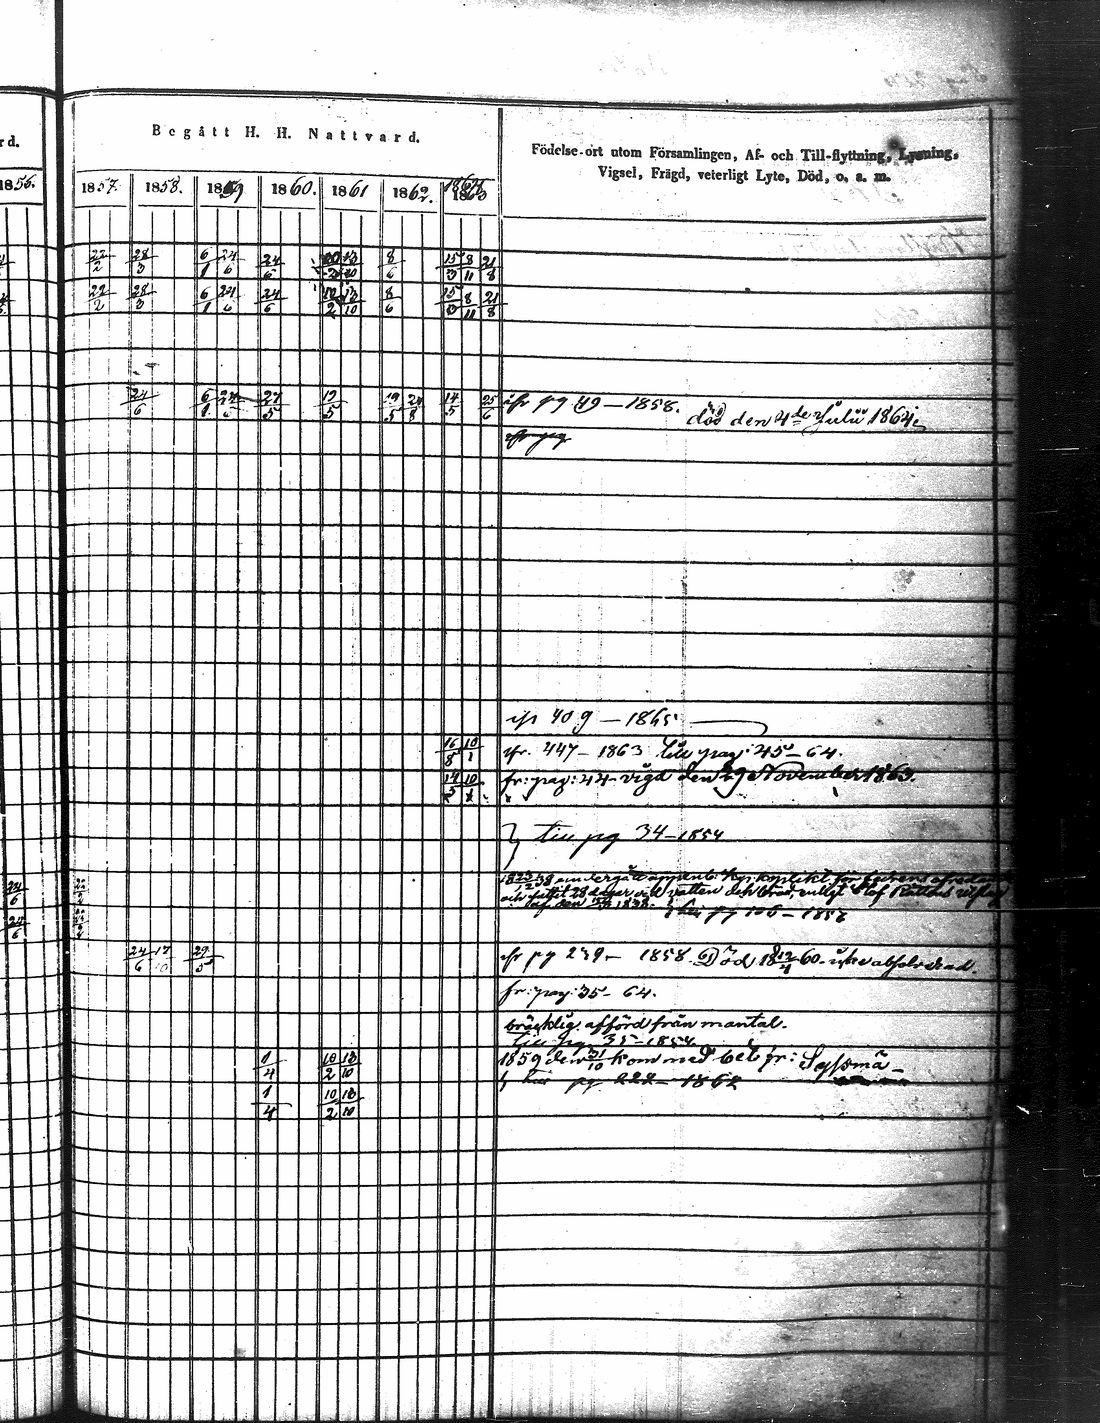 rd.
Begått H. H. Nattvard.
Födelse-ort utom Församlingen, Af- och Till-flyttning, Lysning,
Vigsel, Frägd, veterligt Lyte, Död, o. s. m.
1856. 1857. 1858. 1859 1860. 1861 1862. 1863
22/2 28/3 6/1 24/6 24/6 8/6 15/3 8/11 21/8
22/2 28/3 6/1 24/6 24/6 10/2 13/10 8/6 15/3 8/11 21/8
24/6 6/1 27/5 19/5 19/5 24/8 14/5 25/6 ifr pg 49 — 1858.
död den 4de Julii 1864.
ifr 409 — 1865
16/8 10/1 ifr. 447 — 1863 till pag: 45 — 64.
14/5 10/1 fr: pag: 44 — vigd den 29 November 1863.
till pg 34 — 1854
24/6
och suttit 28 dagar vid vatten och bröd, enligt af Rättens
24/6 till pg 106 — 1857
24/6 17/10 29/5 ifr pg 239 — 1858. Död 18 12/4 60.
fr: pag: 35 — 64.
bräcklig, afförd från mantal.
till pg 35 — 1854
1/4 10/2 13/10 1859 den 31/10 kom med bet fr: Sysmä
1/4 10/2 13/10 till pg 227 — 1862